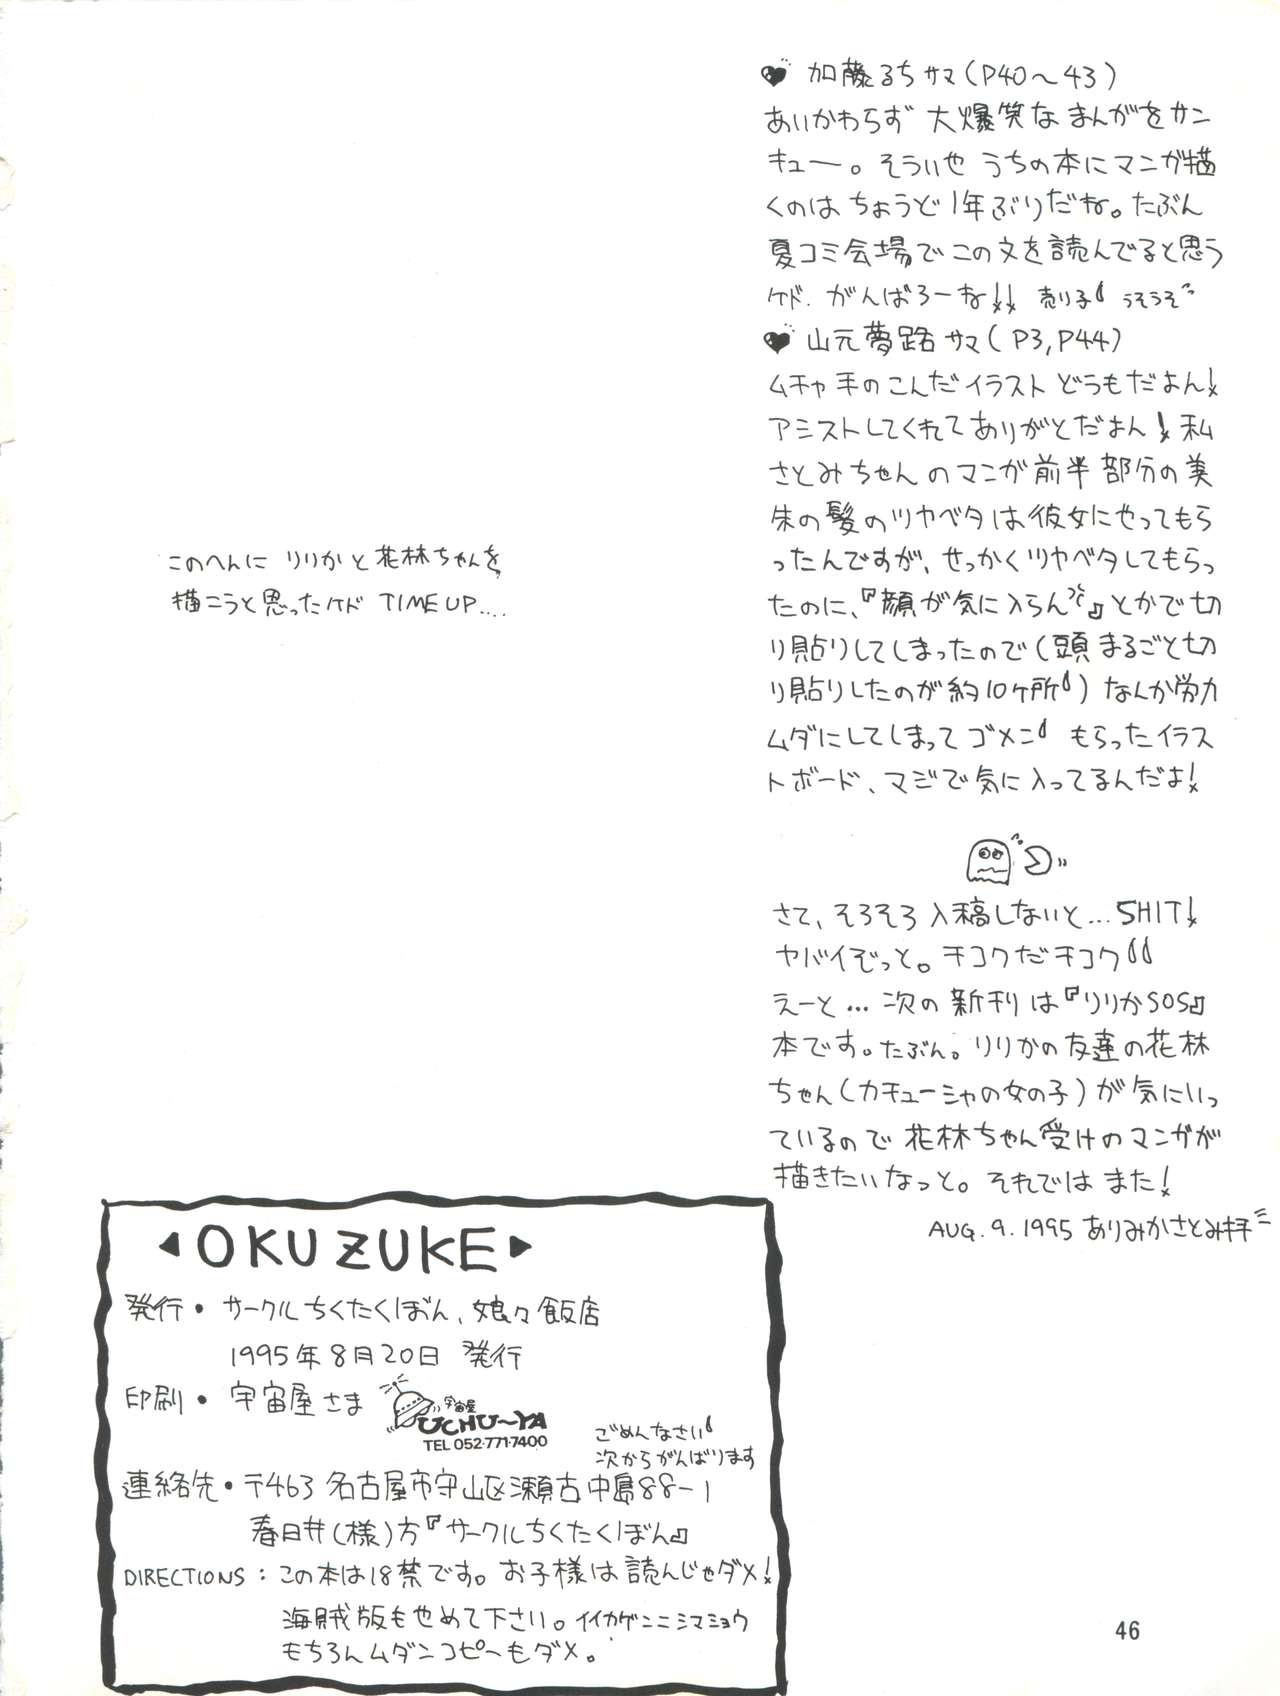 ♥ 加藤るちサマ(P40〜43)
あいかわらず 大爆笑なまんがをサン
キュー。そういや うちの本にマンガ描
くのは ちょうど 1年ぶりだね。たぶん
夏コミ会場で この文を読んでると思う
ケド. がんばろーね!! 売り子 うそうそ
♥ 山元夢路サマ( P3,P44)
ムチャ手のこんだイラスト どうもだよん!
アシストしてくれて ありがとだよん! 私
さとみちゃんのマンガ前半部分の美
朱の髪のツヤベタは彼女にやってもら
ったんですが、せっかくツヤベタしてもらっ
たのに、『顔が気に入らん』とかで切
り貼りしてしまったので(頭まるごと切
り貼りしたのが約10ケ所)なんか労力
ムダにしてしまって ゴメン もらったイラス
トボード、マジで気に入ってるんだよ!
さて、そろそろ入稿しないと…SHIT!
ヤバイぞっと。チコクだチコク
えーと… 次の新刊は『りりかSOS』
本です。たぶん。りりかの友達の花林
ちゃん(カチューシャの女の子)が気にいっ
ているので 花林ちゃん受けのマンガが
描きたいなっと。それでは また!
AUG. 9. 1995 ありみかさとみ拝
このへんに りりかと花林ちゃんを
描こうと思ったケド TIME UP....
OKUZUKE
発行・ サークルちくたくぼん、娘々飯店
1995年8月20日 発行
印刷・ 宇宙屋さま
宇宙屋
UCHU〜YA
TEL 052・771・7400
ごめんなさい
次からがんばります
連絡先・〒463 名古屋市守山区瀬古中島88-1
春日井(様)方『サークルちくたくぼん』
DIRECTIONS : この本は18禁です。お子様は読んじゃダメ!
海賊版もやめて下さい。イイカゲンニシマショウ
もちろんムダンコピーもダメ。
46